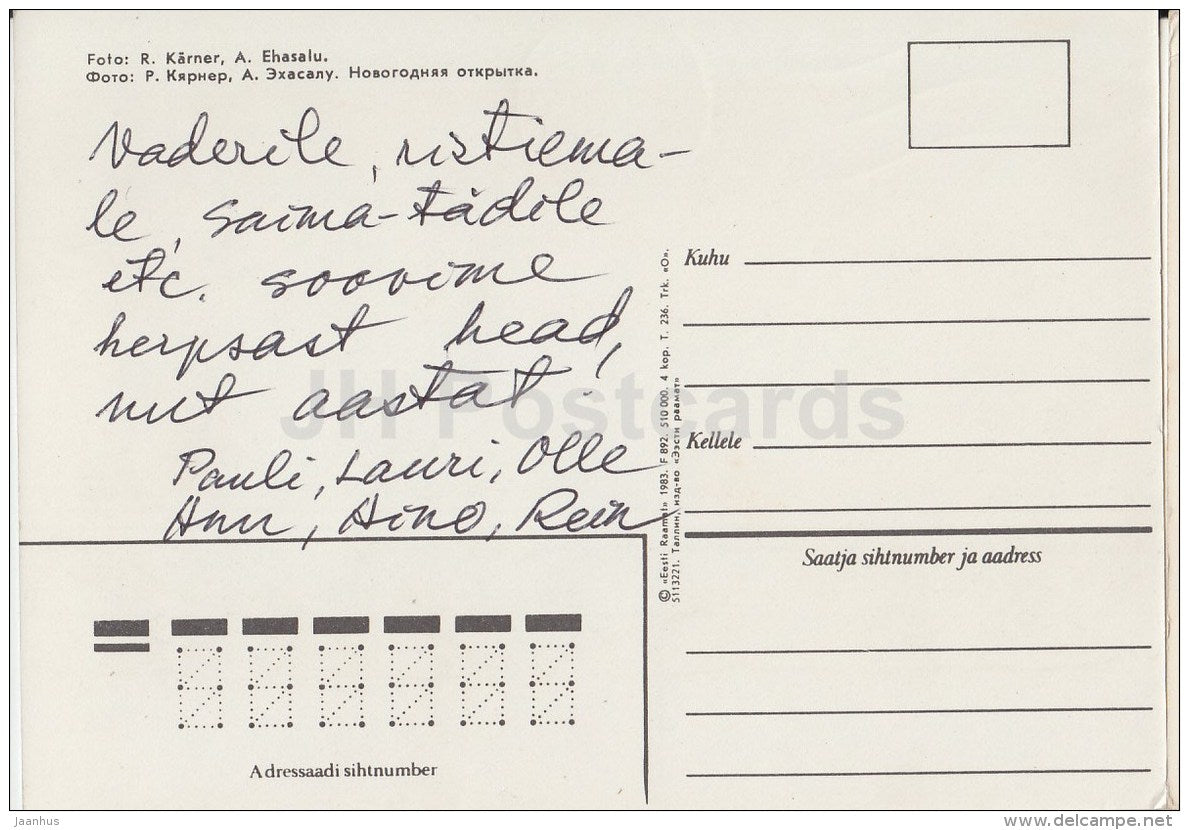 Foto: R. Kärner, A. Ehasalu.
Фото: Р. Кярнер, А. Эхасалу. Новогодняя открытка.
Vaderile, ristiema-
le, Saima-tädile
etc. soovime
head,
uut aastat!
Pauli, Lauri, Olle
Anu, Aino, Rein
Kuhu
Kellele
Saatja sihtnumber ja aadress
© «Eesti Raamat» 1983. F 892. 510 000. 4 kop. T. 236. Trk. «O».
5113221. Таллин, изд-во «Ээсти раамат»
Adressaadi sihtnumber
JH Postcards
Jaanhus
delcampe.net